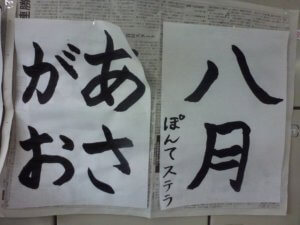 八月
ぽんてステラ
あさ
がお